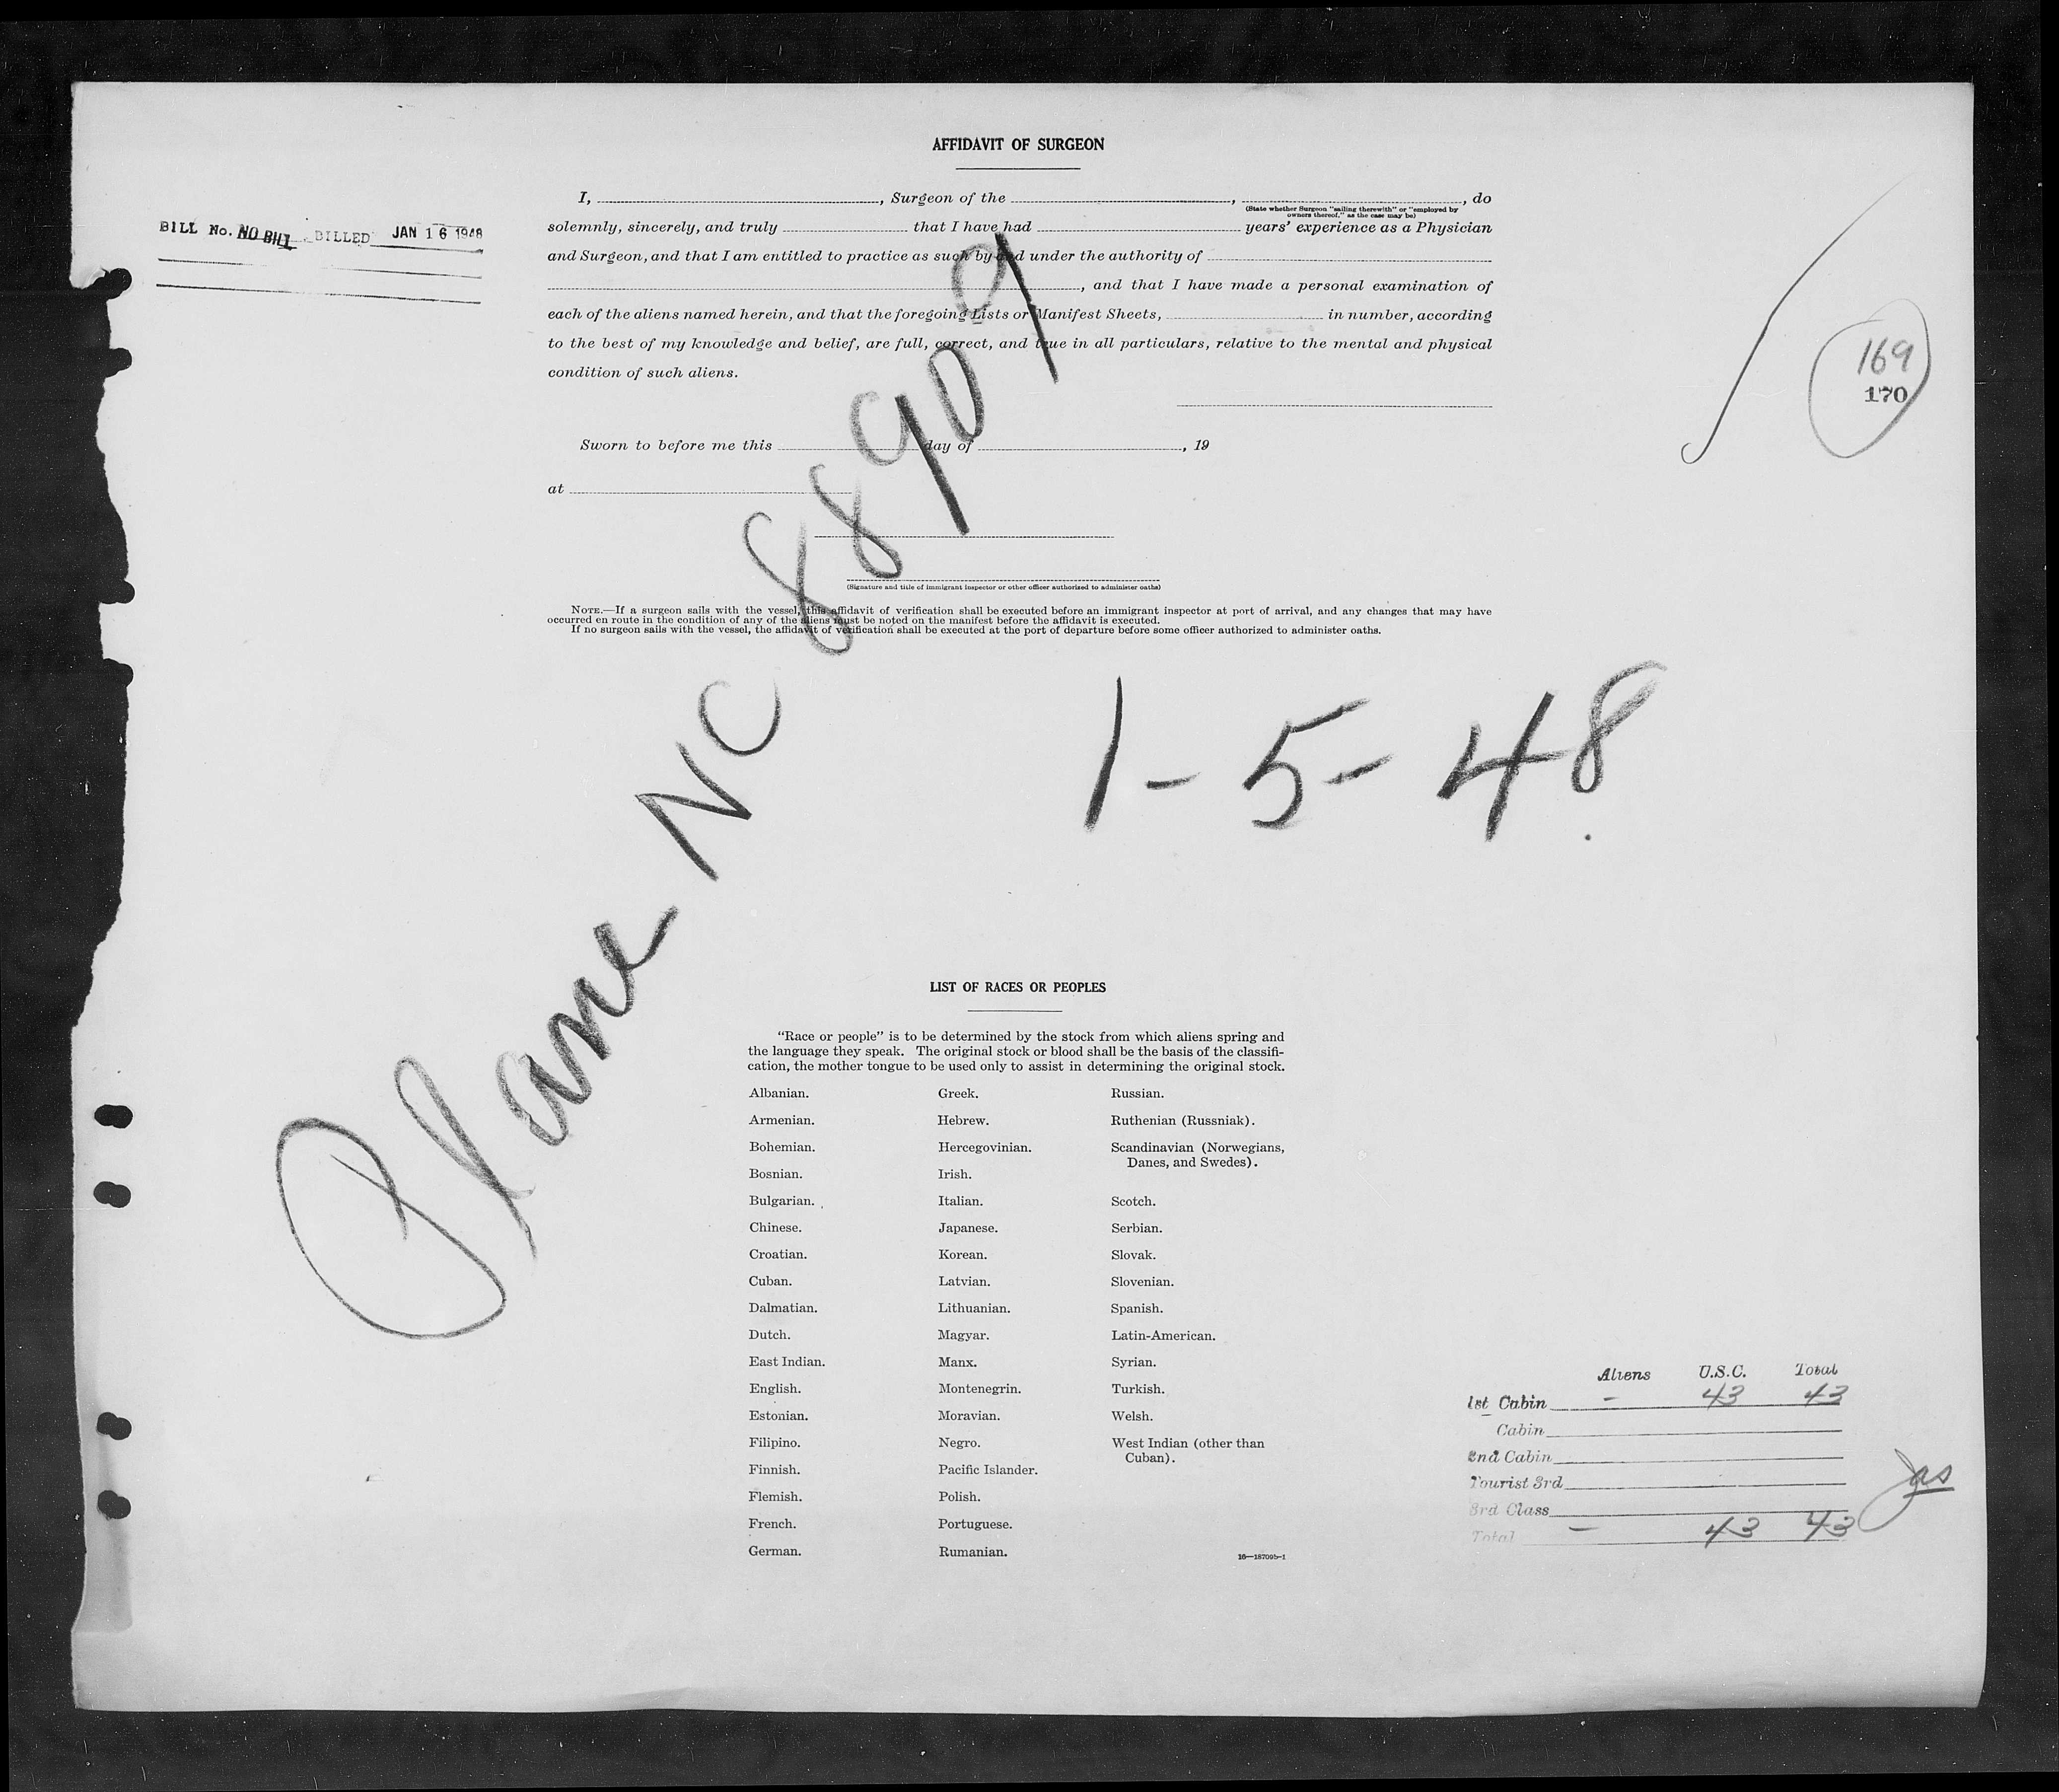 AFFIDAVIT OF SURGEON
I, , Surgeon of the , , do
(State whether Surgeon "sailing therewith" or "employed by
owners thereof," as the case may be)
solemnly, sincerely, and truly that I have had years' experience as a Physician
and Surgeon, and that I am entitled to practice as such by and under the authority of
, and that I have made a personal examination of
each of the aliens named herein, and that the foregoing Lists or Manifest Sheets, in number, according
to the best of my knowledge and belief, are full, correct, and true in all particulars, relative to the mental and physical
condition of such aliens.
Sworn to before me this day of , 19
at
(Signature and title of immigrant inspector or other officer authorized to administer oaths)
NOTE.—If a surgeon sails with the vessel, this affidavit of verification shall be executed before an immigrant inspector at port of arrival, and any changes that may have
occurred en route in the condition of any of the aliens must be noted on the manifest before the affidavit is executed.
If no surgeon sails with the vessel, the affidavit of verification shall be executed at the port of departure before some officer authorized to administer oaths.
BILL No. NO BILL BILLED JAN 16 1948
169
170
Plane NC 88909
1-5-48
LIST OF RACES OR PEOPLES
"Race or people" is to be determined by the stock from which aliens spring and
the language they speak. The original stock or blood shall be the basis of the classifi-
cation, the mother tongue to be used only to assist in determining the original stock.
Albanian.
Armenian.
Bohemian.
Bosnian.
Bulgarian.
Chinese.
Croatian.
Cuban.
Dalmatian.
Dutch.
East Indian.
English.
Estonian.
Filipino.
Finnish.
Flemish.
French.
German.
Greek.
Hebrew.
Hercegovinian.
Irish.
Italian.
Japanese.
Korean.
Latvian.
Lithuanian.
Magyar.
Manx.
Montenegrin.
Moravian.
Negro.
Pacific Islander.
Polish.
Portuguese.
Rumanian.
Russian.
Ruthenian (Russniak).
Scandinavian (Norwegians,
Danes, and Swedes).
Scotch.
Serbian.
Slovak.
Slovenian.
Spanish.
Latin-American.
Syrian.
Turkish.
Welsh.
West Indian (other than
Cuban).
16—18709b-1
Aliens U.S.C. Total
1st Cabin - 43 43
Cabin
2nd Cabin
Tourist 3rd
3rd Class
Total - 43 43